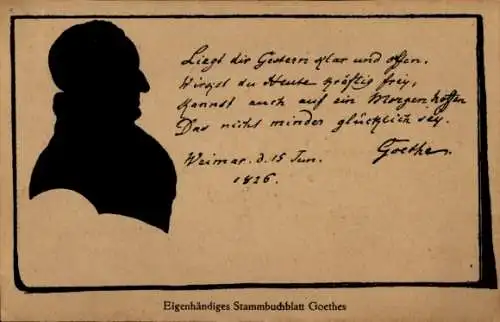 Liegt dir Gestern klar und offen,
Wirkst du Heute kräftig frey,
Kannst auch auf ein Morgen hoffen
Das nicht minder glücklich sey.
Weimar. d. 15 Jun.
1826.
Goethe.
Eigenhändiges Stammbuchblatt Goethes